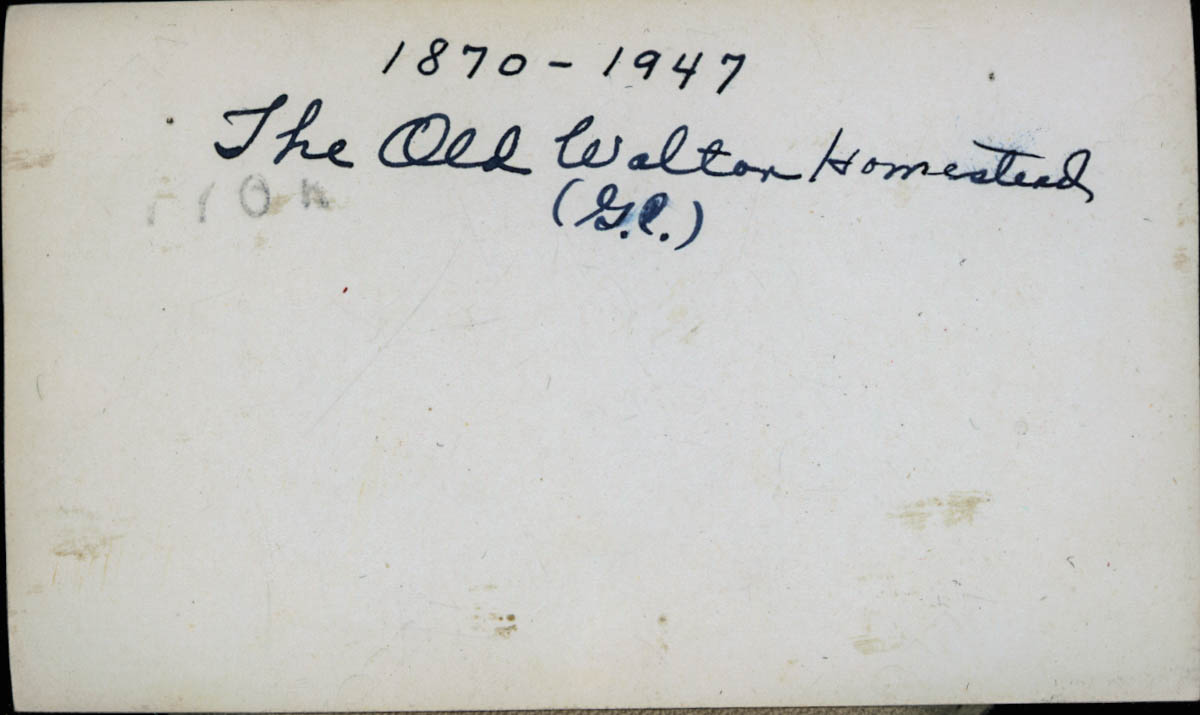 1870 - 1947
The Old Walton Homestead
(G.P.)